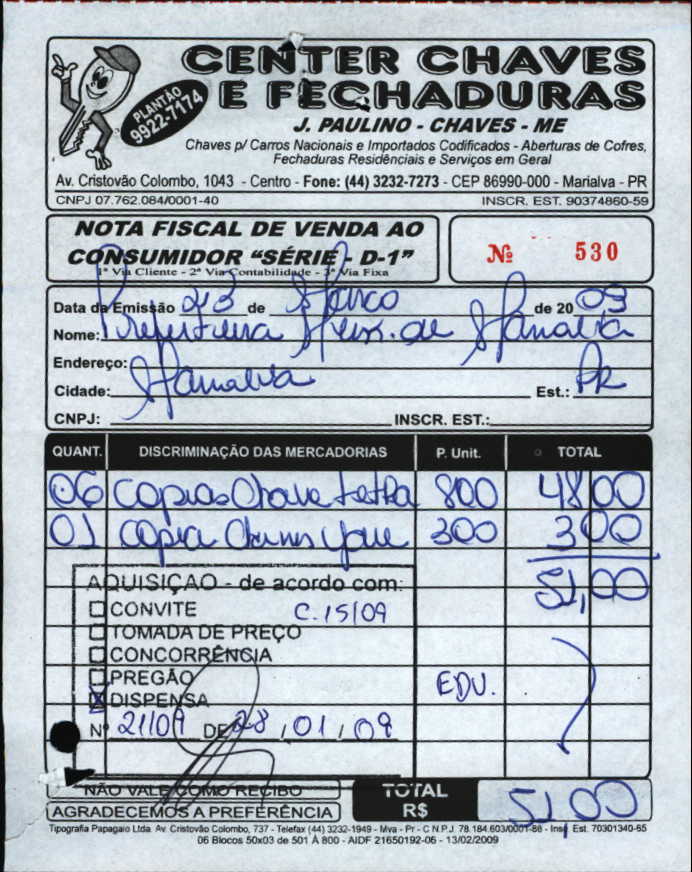 CENTER CHAVES
E FECHADURAS
PLANTÃO
9922-7174
J. PAULINO - CHAVES - ME
Chaves p/ Carros Nacionais e Importados Codificados - Aberturas de Cofres,
Fechaduras Residênciais e Serviços em Geral
Av. Cristovão Colombo, 1043 - Centro - Fone: (44) 3232-7273 - CEP 86990-000 - Marialva - PR
CNPJ 07.762.084/0001-40 INSCR. EST. 90374860-59
NOTA FISCAL DE VENDA AO
CONSUMIDOR “SÉRIE - D-1”
1ª Via Cliente - 2ª Via Contabilidade - 3ª Via Fixa
Nº 530
Data da Emissão de Março de 20 09
Nome: Prefeitura Mun. de Marialva
Endereço:
Cidade: Marialva Est.: PR
CNPJ: INSCR. EST.:
QUANT. DISCRIMINAÇÃO DAS MERCADORIAS P. Unit. TOTAL
06 Copias Chave tetra 800 48,00
01 copia Chave yale 300 3,00
51,00
AQUISIÇAO - de acordo com:
CONVITE C.15/09
TOMADA DE PREÇO
CONCORRÊNCIA
PREGÃO EDU.
X DISPENSA
Nº 21/09 DE 28 / 01 / 09
NÃO VALE COMO RECIBO
AGRADECEMOS A PREFERÊNCIA
TOTAL R$ 51,00
Tipografia Papagaio Ltda. Av. Cristovão Colombo, 737 - Telefax (44) 3232-1949 - Mva - Pr - C.N.P.J. 78.184.603/0001-86 - Insc. Est. 70301340-65
06 Blocos 50x03 de 501 À 800 - AIDF 21650192-06 - 13/02/2009